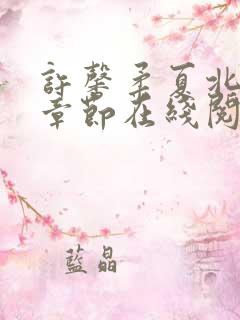 許馨柔夏北
章節在綫閱
藍晶